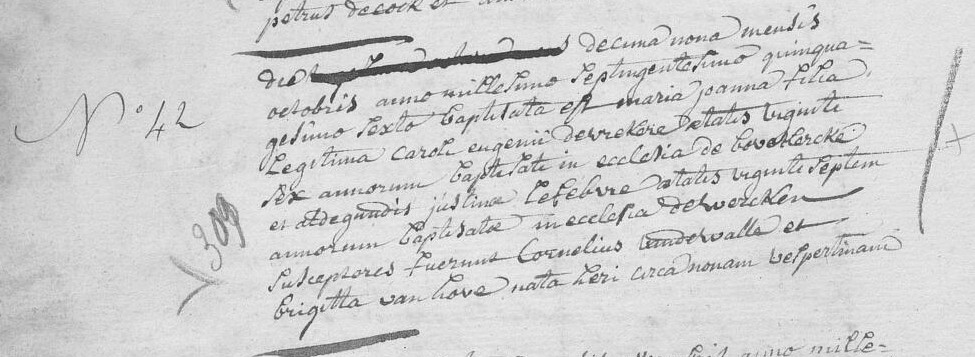 petrus decock et
die decima nona mensis
N.° 42
octobris anno millesimo septingentesimo quinqua=
gesimo sexto baptisata est maria joanna filia
legitima caroli eugenii devrekere ætatis viginti
sex annorum baptisati in ecclesia de bovekercke
et aldegundis justinæ lefebvre ætatis viginti septem
annorum baptisatæ in ecclesia de wercken
309
susceptores fuerunt Cornelius vandewalle et
brigitta van hove nata heri circa nonam vespertinam
anno mille=